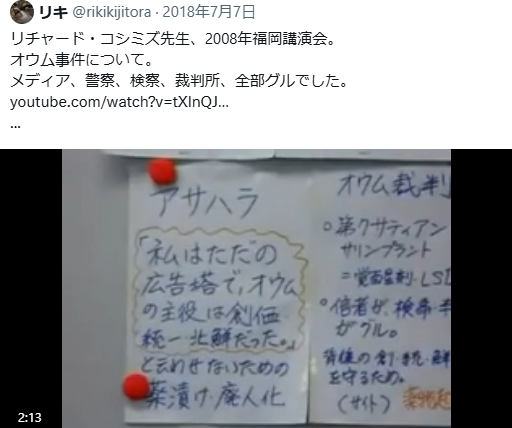 リキ @rikikijitora · 2018年7月7日
リチャード・コシミズ先生、2008年福岡講演会。
オウム事件について。
メディア、警察、検察、裁判所、全部グルでした。
youtube.com/watch?v=tXlnQJ…
...
アサハラ
「私はただの
広告塔で、オウム
の主役は創価・
統一・北鮮だった。」
と云わせないための
薬漬け・廃人化
オウム裁判
○第7サティアン
サリンプラント
=覚醒剤・LSD
○信者が、検察・
がグル。
背後の創・統・鮮
を守るため。
(サイト)
2:13